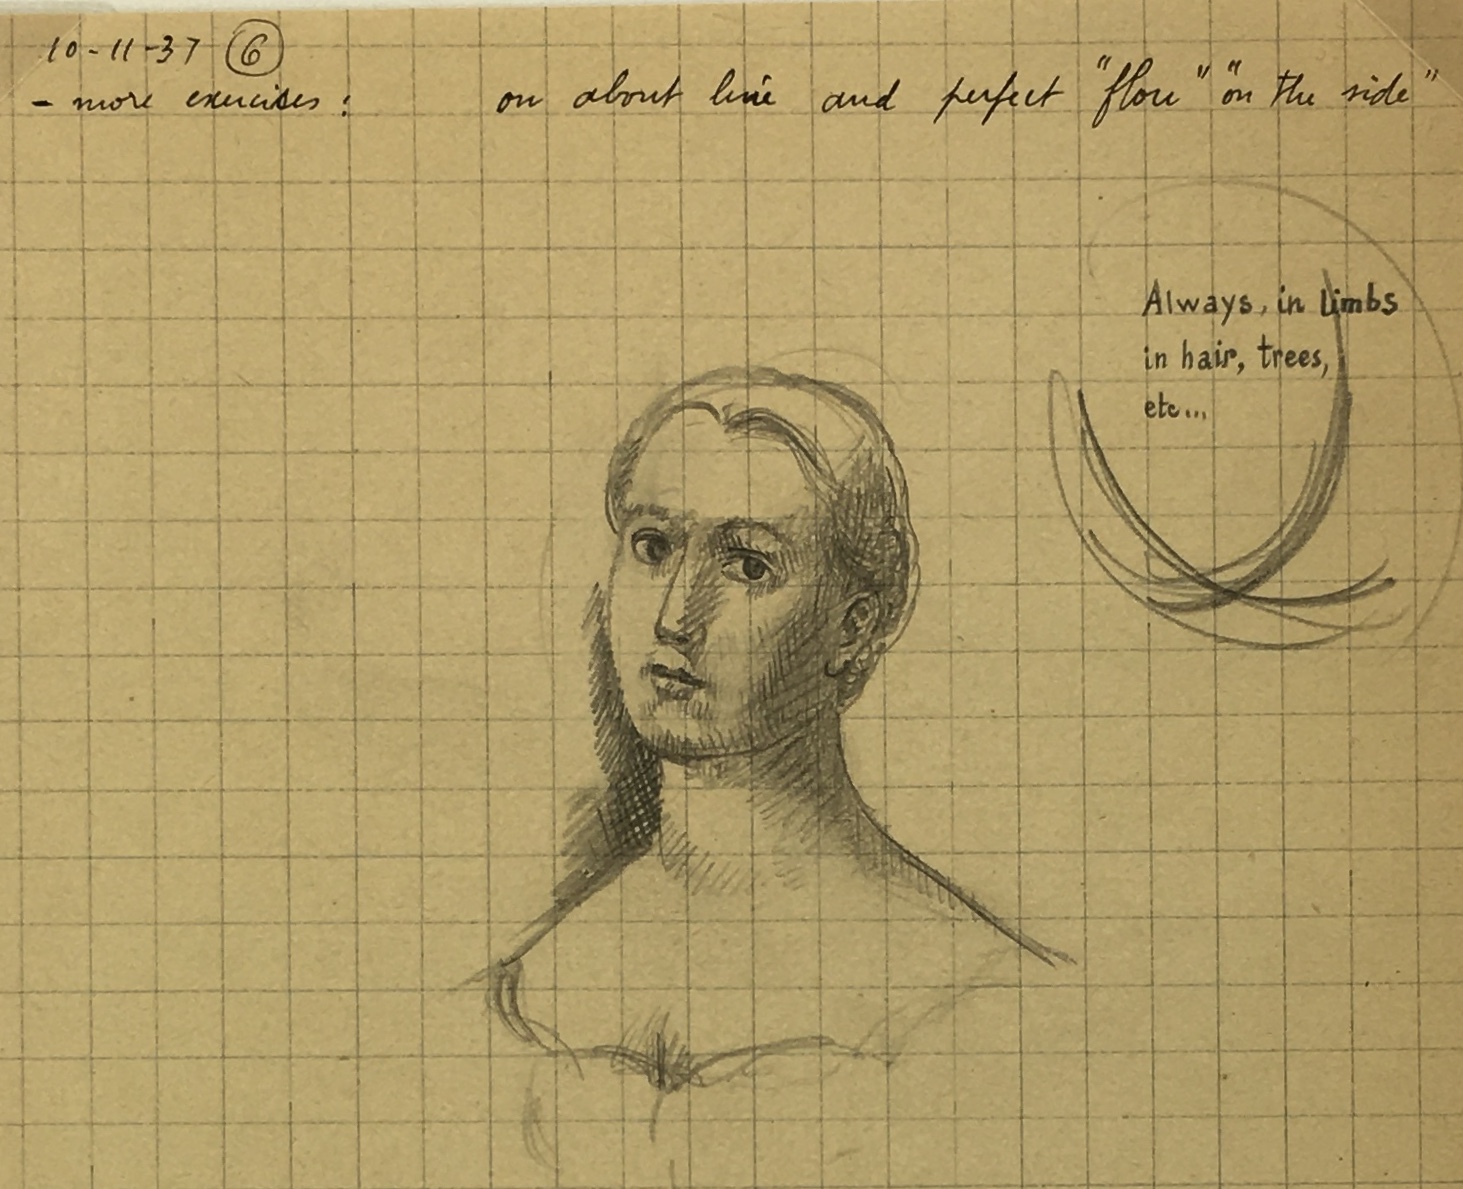 10-11-37 6
- more exercises : on about line and perfect "flow" "on the side"
Always, in limbs
in hair, trees,
etc...